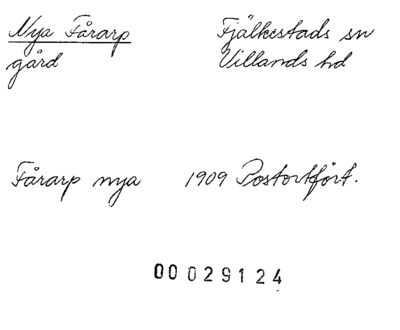 Nya Fårarp Fjälkestads sn
gård Villands hd
Fårarp nya 1909 Postortsfört.
00029124